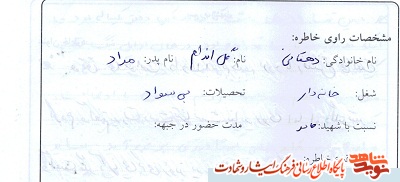 مشخصات راوی خاطره:
نام خانوادگی: دهقانی نام: گل اندام نام پدر: مراد
شغل: خانه دار تحصیلات: بی سواد
نسبت با شهید: مادر مدت حضور در جبهه:
خاطره:
نوید شاهد پایگاه اطلاع رسانی فرهنگ ایثار و شهادت